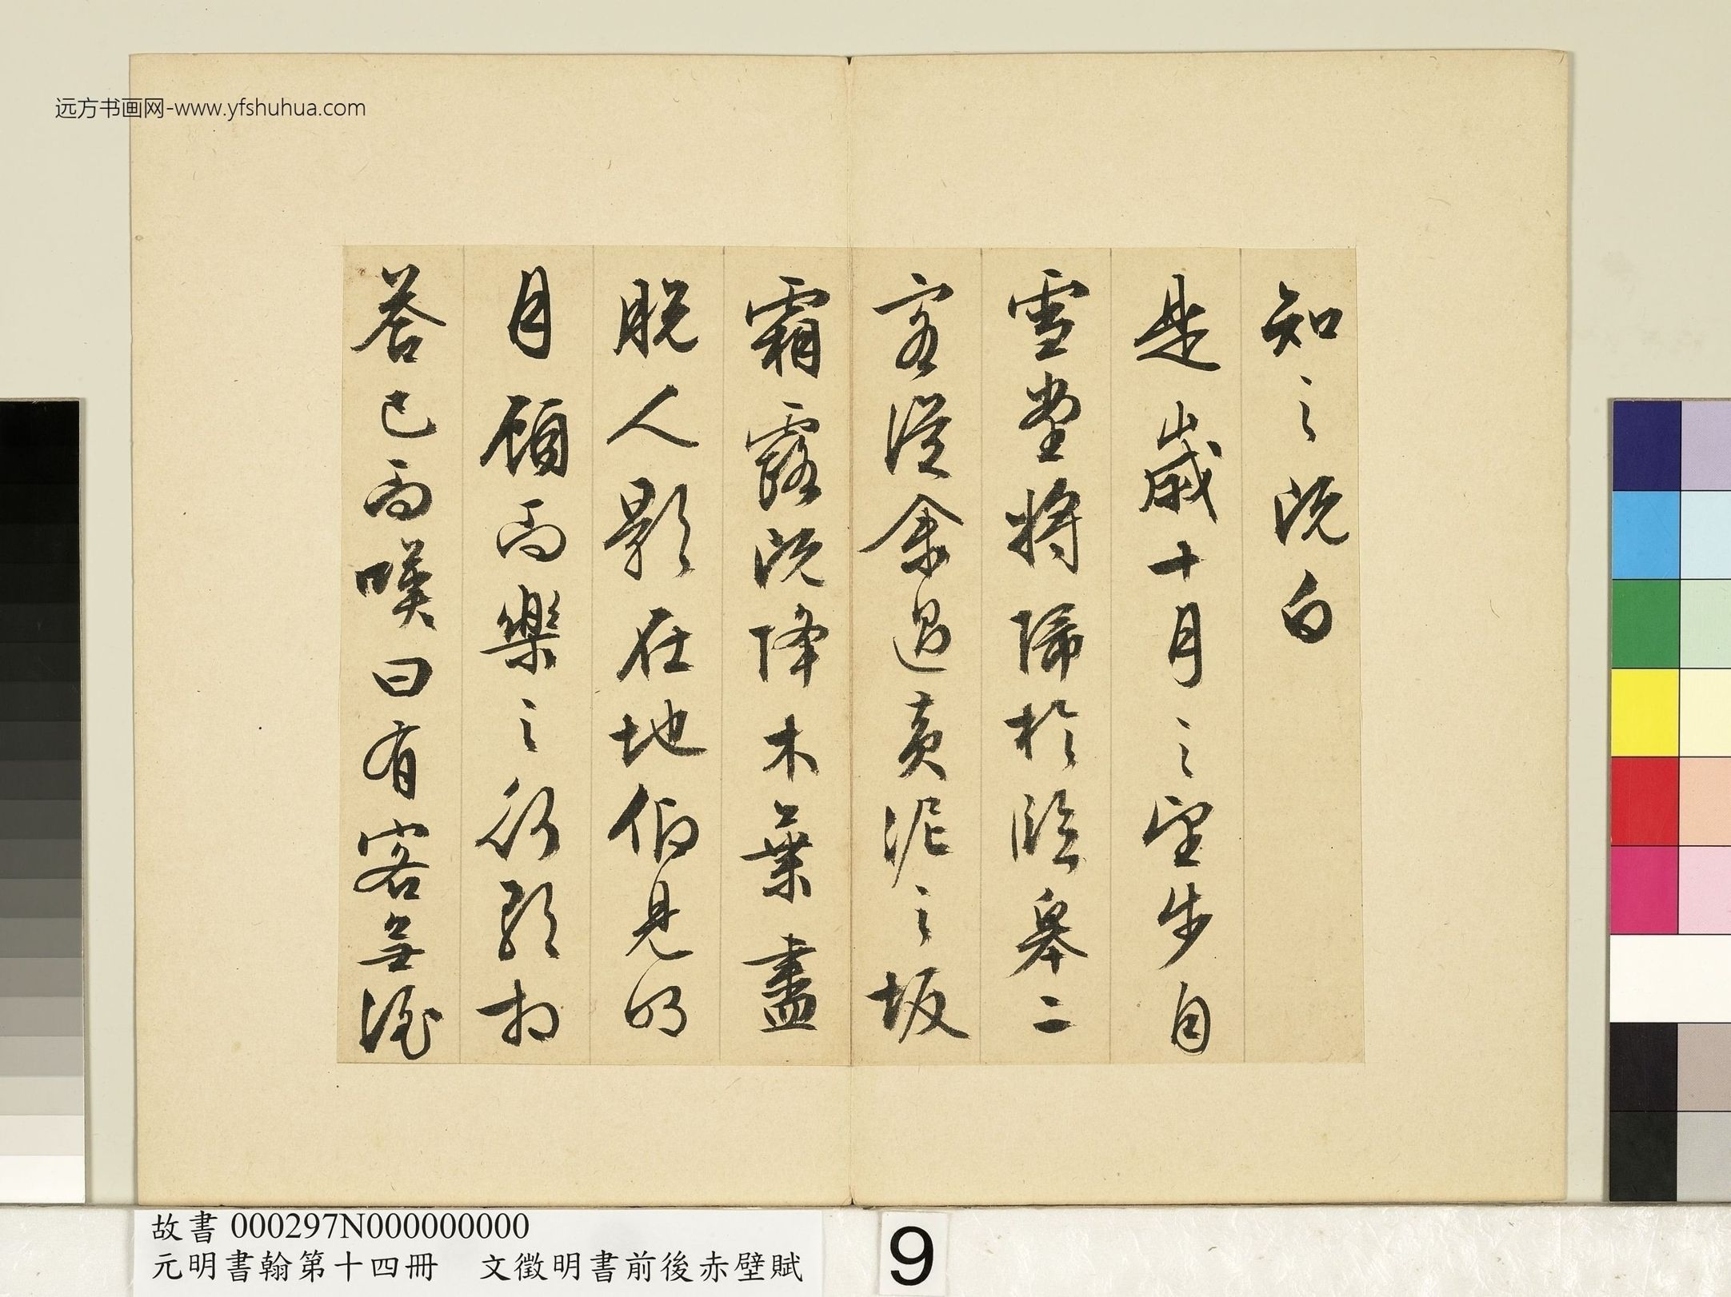 远方书画网-www.yfshuhua.com
知之既白
是歲十月之望步自
雪堂將歸於臨皋二
客從余過黄泥之坂
霜露既降木葉盡
脱人影在地仰見明
月顧而樂之行歌相
答已而嘆曰有客無酒
故書 000297N000000000
元明書翰第十四冊 文徵明書前後赤壁賦
9